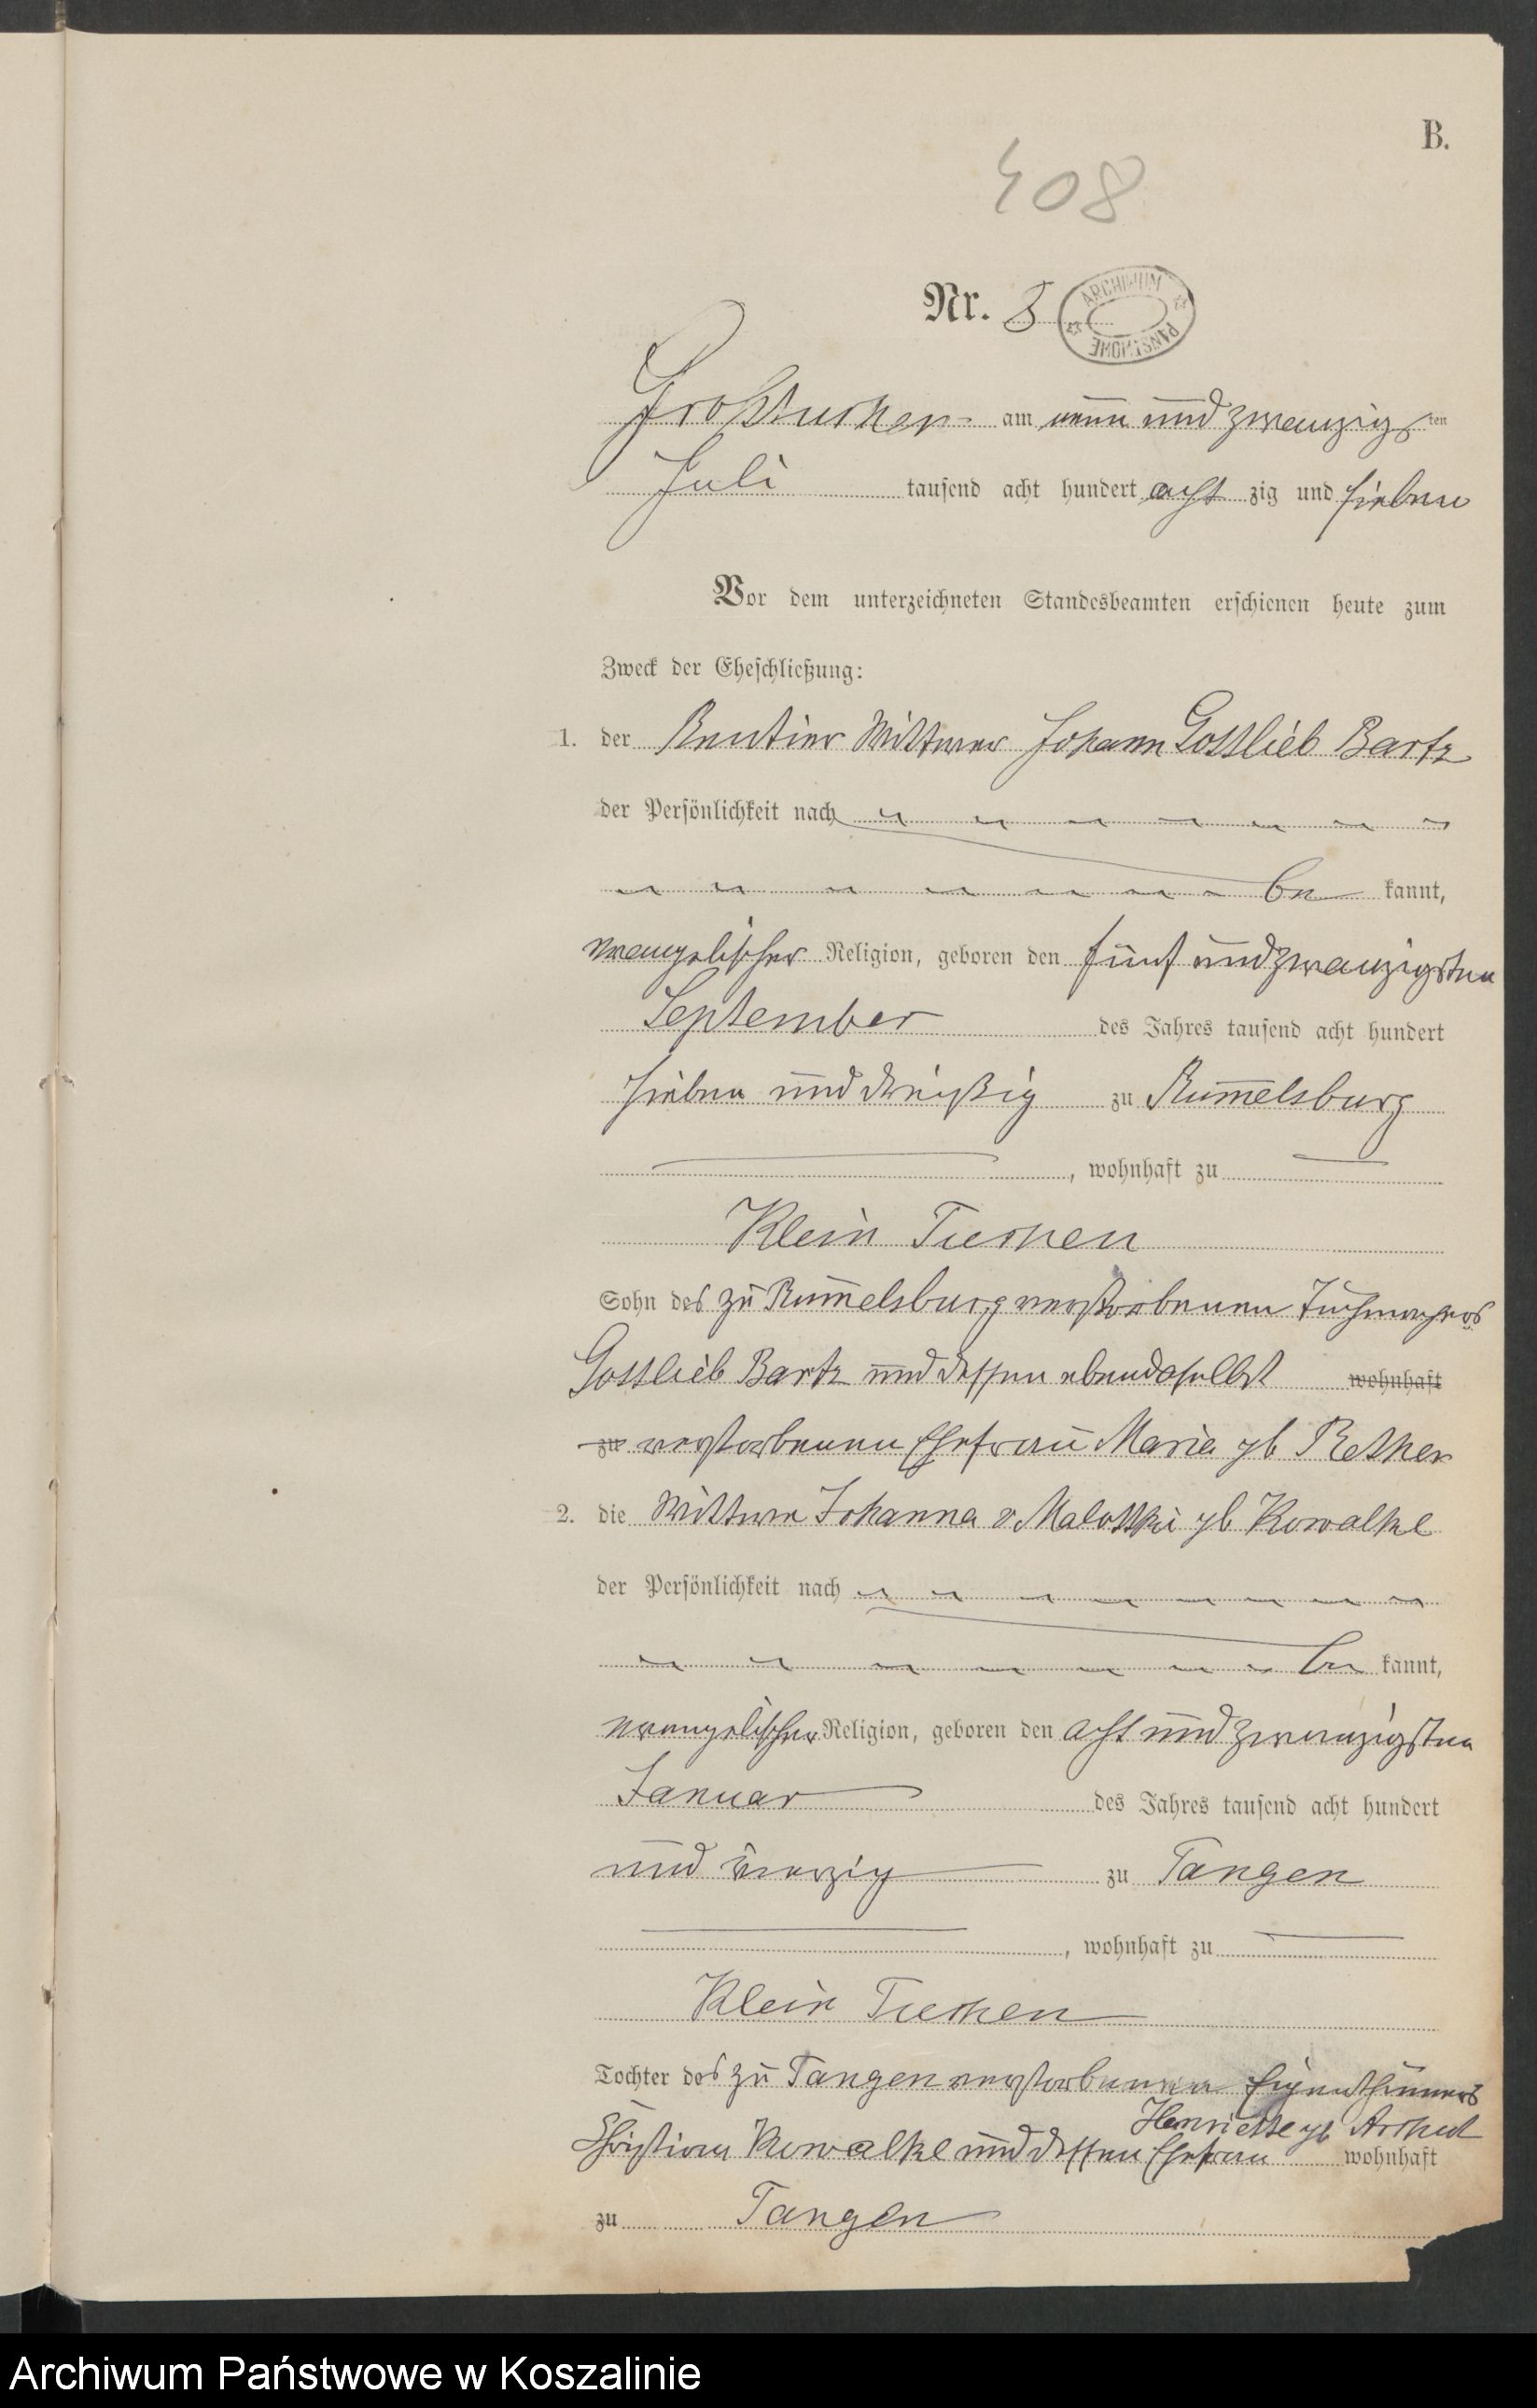 B.
408
Nr. 8
ARCHIWUM PAŃSTWOWE
Großtuchen am neun und zwanzigsten
Juli tausend acht hundert acht zig und sieben
Vor dem unterzeichneten Standesbeamten erschienen heute zum
Zweck der Eheschließung:
1. der Rentier Wittwer Johann Gottlieb Bartz
der Persönlichkeit nach
be kannt,
evangelischer Religion, geboren den fünf und zwanzigsten
September des Jahres tausend acht hundert
sieben und dreißig zu Rum̄elsburg
, wohnhaft zu
Klein Tuchen
Sohn des zu Rum̄elsburg verstorbenen Tuchmachers
Gottlieb Bartz und dessen ebendaselbst wohnhaft
zu verstorbenen Ehefrau Marie gb
2. die Wittwe Johanna v. Malottki gb Kowalke
der Persönlichkeit nach
be kannt,
evangelischer Religion, geboren den acht und zwanzigsten
Januar des Jahres tausend acht hundert
und vierzig zu Tangen
, wohnhaft zu
Klein Tuchen
Tochter des zu Tangen verstorbenen Eigenthümers
Henriette gb
Christian Kowalke und dessen Ehefrau wohnhaft
zu Tangen
Archiwum Państwowe w Koszalinie